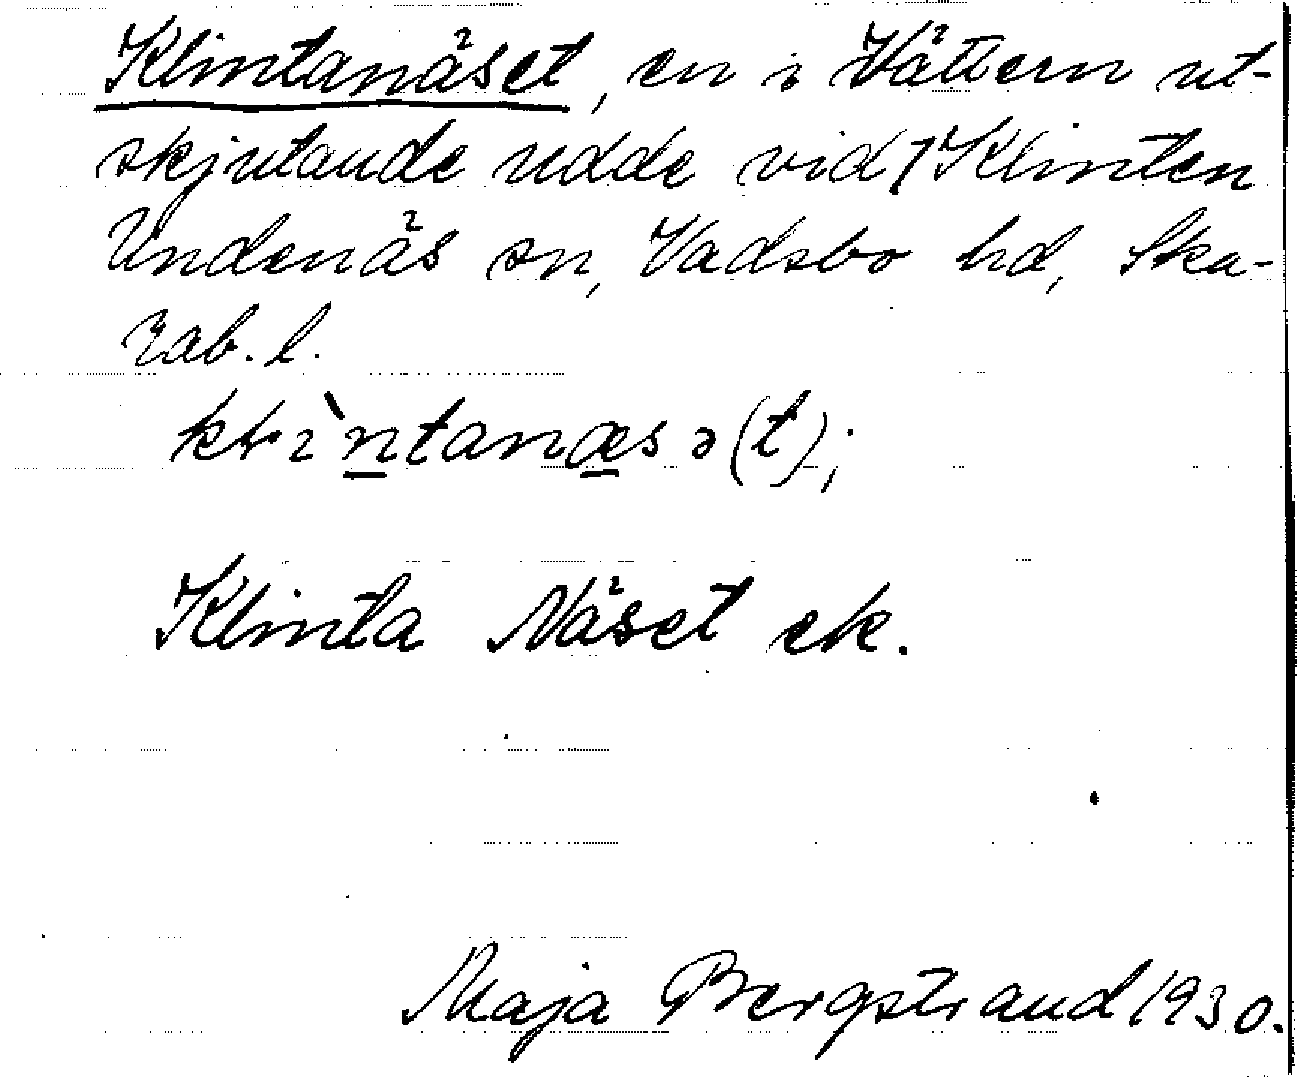 Klintanäset, en i Vättern ut-
skjutande udde vid 1 Klinten
Undenäs sn, Vadsbo hd, Ska-
rab. l.
Klinta Näset ek.
Maja Bergstrand 1930.